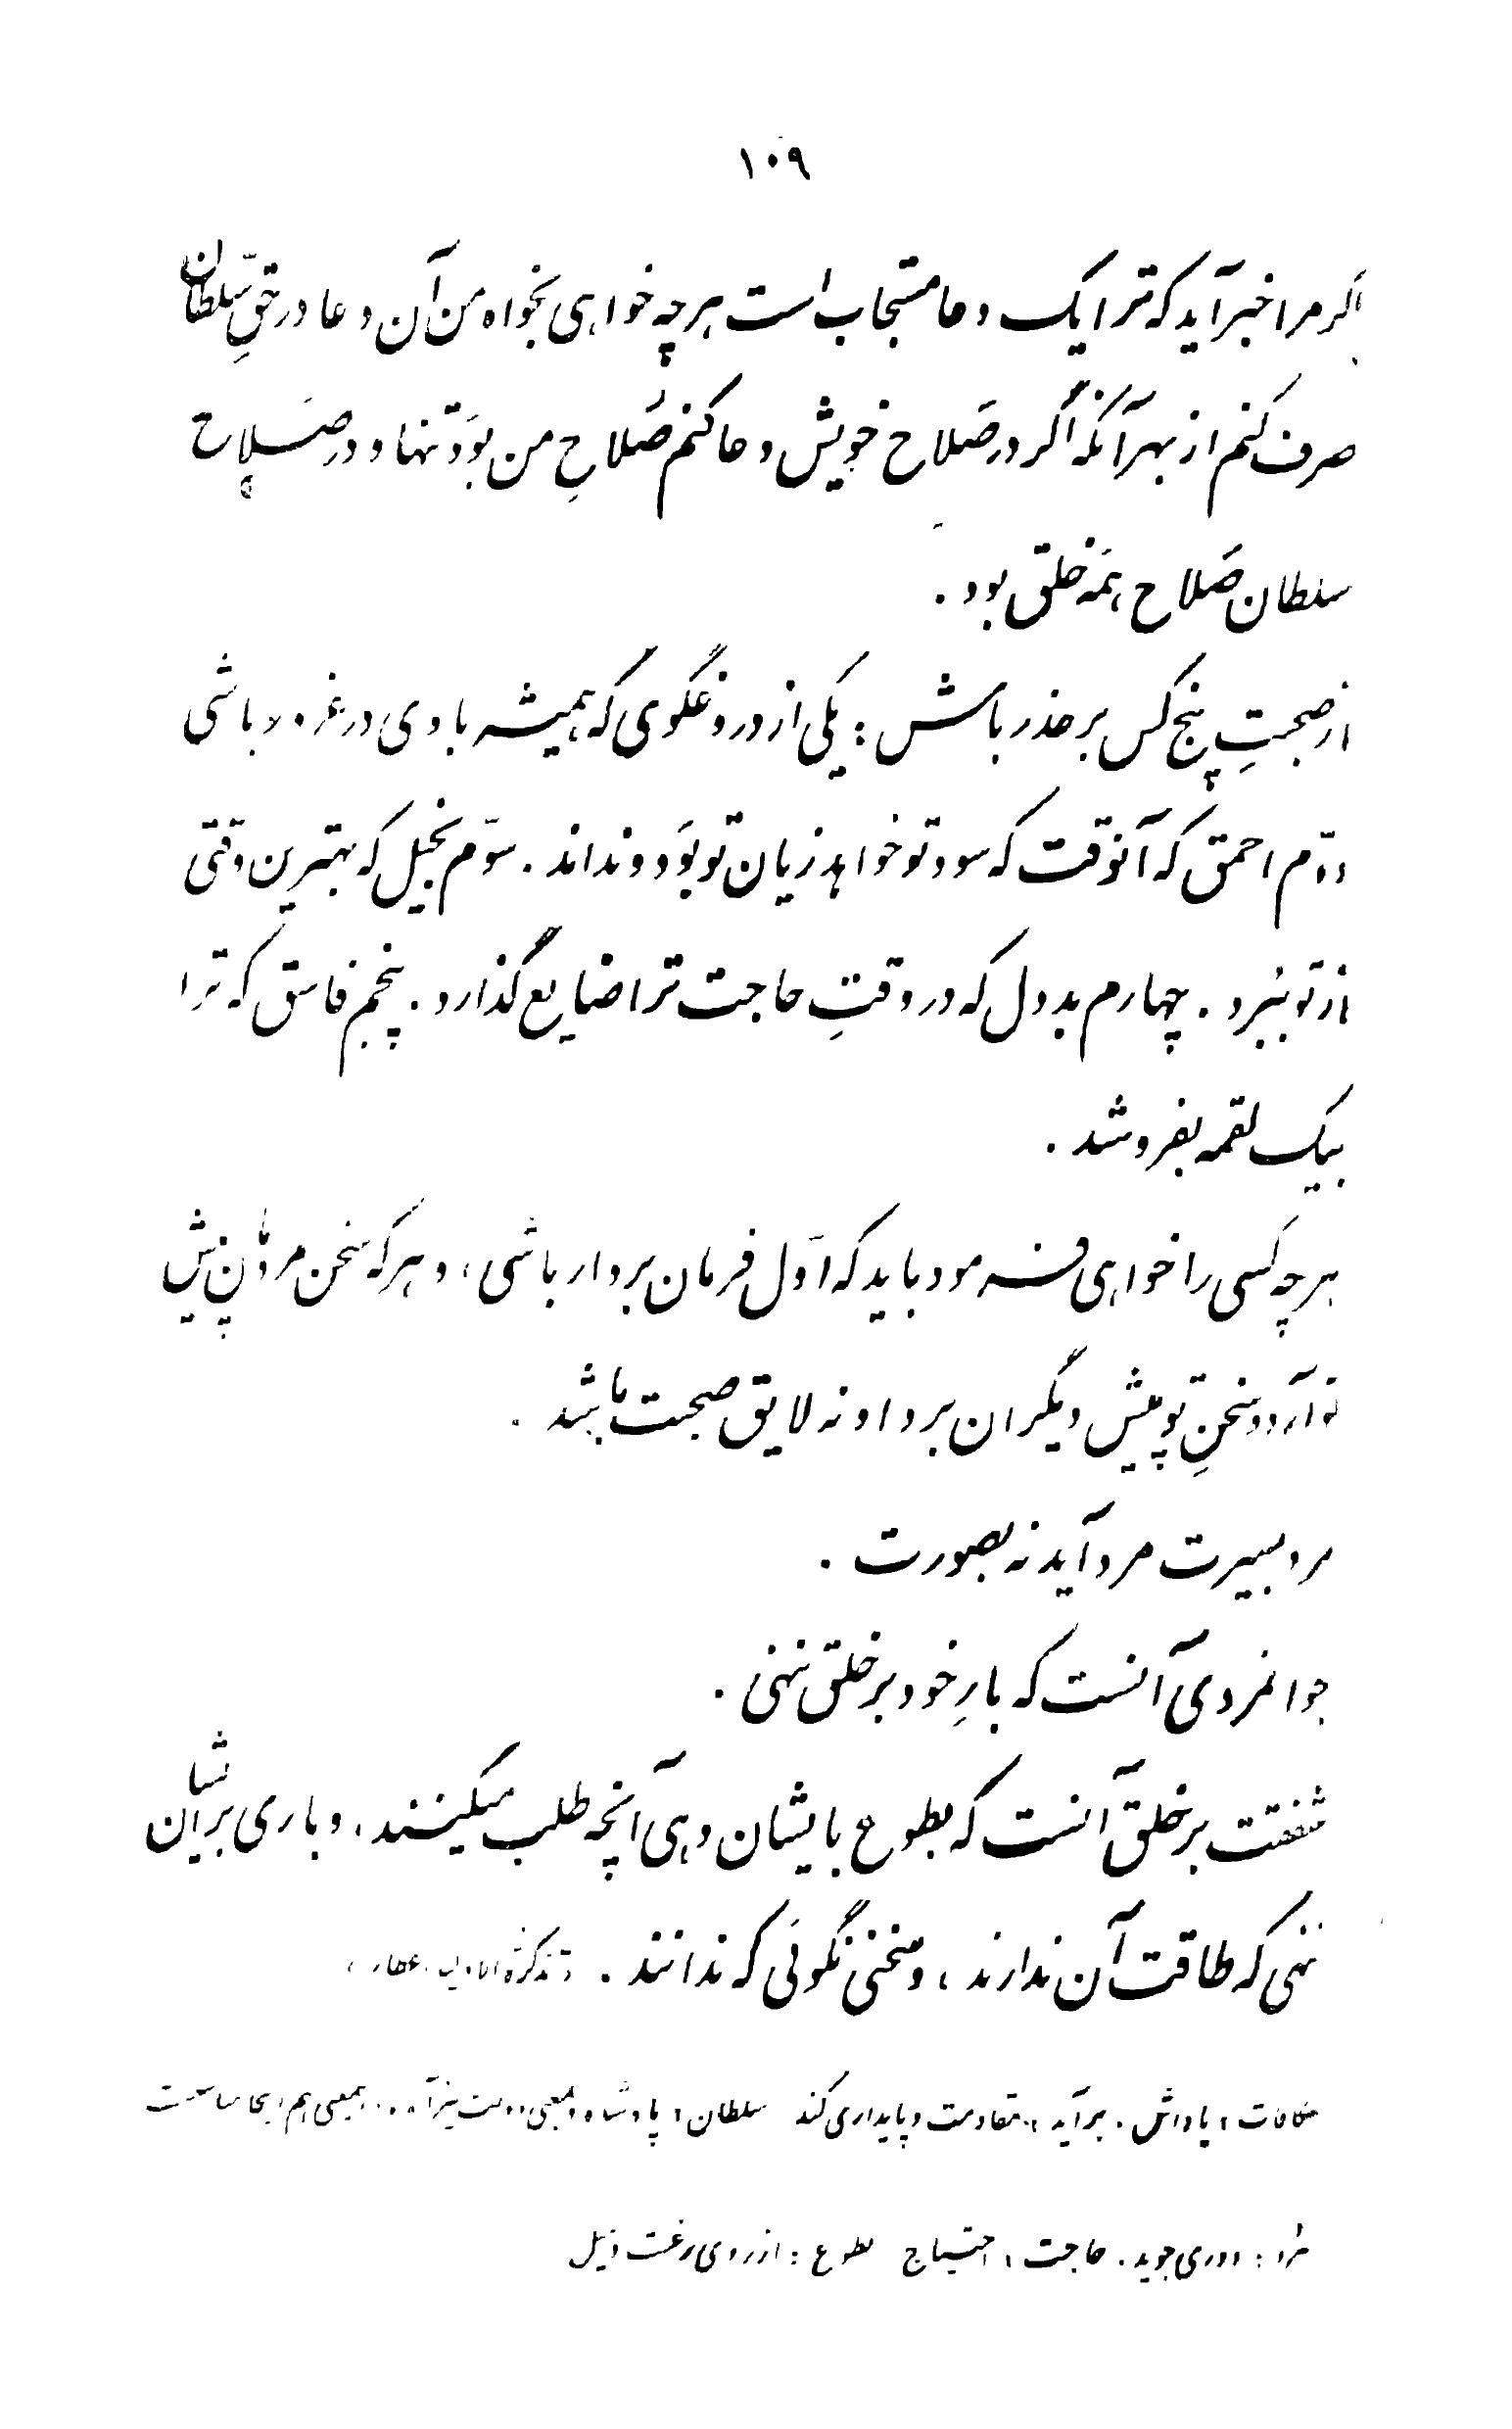 ۱۰۹
اگر مرا خبر آید که ترا یک دعا مستجاب است هر چه خواهی بخواه من آن دعا در حقِ سلطان
صرف کنم از بهر آنکه اگر در صَلاح خویش دعا کنم صَلاحِ من بوَد تنها و در صَلاح
سلطان صَلاح همَه خلق بود .
از صحبتِ پنج کس بر حذر باش : یکی از دروغگوی که همیشه با وی در غرور باشی
دوّم احمق که آنوقت که سود تو خواهد زیان تو بوَد و نداند . سوّم بخیل که بهترین وقتی
از تو ببُرد . چهارم بد دل که در وقتِ حاجت ترا ضایع گذارد . پنجم فاسق که ترا
بیک لقمه بفروشد .
هر چه کسی را خواهی فرمود باید که اوّل فرمان بردار باشی ، و هر که سخن مردمان پیش
تو آرد و سخنِ تو پیش دیگران برد او نه لایق صحبت باشد .
مرد بسیرت مرد آید نه بصورت .
جوانمردی آنست که بارِ خود بر خلق ننهی .
شفقت بر خلق آنست که بطوع بایشان دهی آنچه طلب میکنند ، و باری بر ایشان
ننهی که طاقت آن ندارند ، و سخنی نگوئی که ندانند . « تذکرة الاولیاء عطار »
مکافات : پاداش . برآید : مقاومت و پایداری کند سلطان : پادشاه و بمعنی نیز آمده بمعنی هم اینجا مناسبت
ببرد : دوری جوید . حاجت : احتیاج بطوع : از روی رغبت و میل